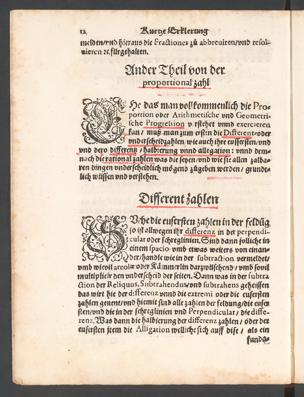 12 Kurtze Erklerung
melden/und hieraus die Fractiones zů abbreuiren/und resol-
uieren ꝛc. fürgehalten.
Ander Theil von der
proportional zahl
EHe das man volkommenlich die Pro-
portion oder Arithmetische und Geometri-
sche Progression verstehet und exercieren
kan/ muß man zum ersten die Different-oder
underscheidzahlen, wie auch ihre eussersten, und
und dero differentz/halbierung unnd allegation: unnd dem-
nach die rational zahlen was die seyen/und wie sie allen zalha-
ren dingen underscheidlich mögen zůgeben werden/ gründt-
lich wissen und verstehen.
Different zahlen
SUche die eusersten zahlen in der feldůg
so ist allwegen ihr differenz in der perpendi-
cular oder schreglinien. Sind dann solliche in
einem spacio und etwas weiters von einan-
der/handle wie in der subtraction vermeldet/
und wievil areolæ oder Kämmerlin darzwüschend/umb sovil
multiplicir den underscheid der seiten. Dann was in der subtra
ction der Reliquus, Subtrahendus und subtrahens geheissen
das wirt hie der differenz unnd die extremi oder die eusersten
zahlen genent/und hiemit sind alle zahlen der feldung/die euser
sten/und die in der schreglinien und Perpendicular/ die diffe-
renz. Was dann die halbierung der differenz zahlen/ oder der
eusersten seem die Alligation welliche sich auff dise/ als ein
funda-